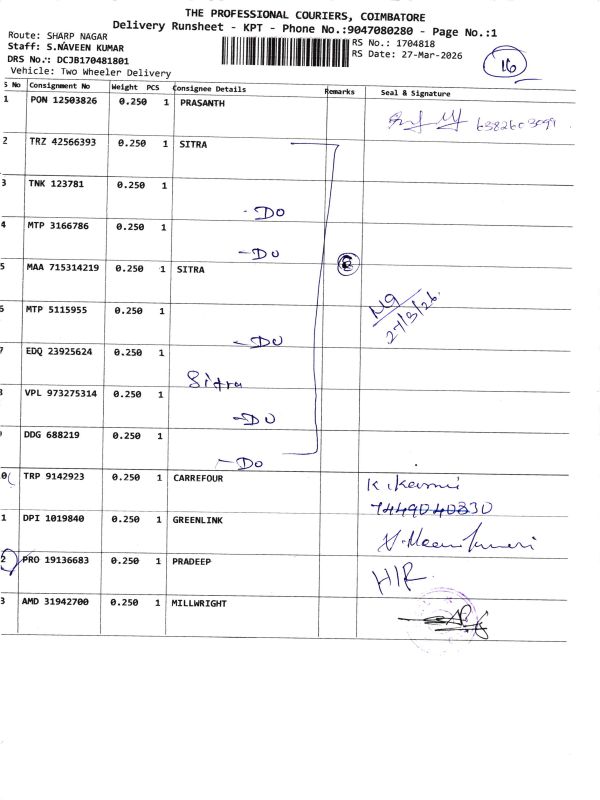 THE PROFESSIONAL COURIERS, COIMBATORE
Delivery Runsheet - KPT - Phone No.:9047080280 - Page No.:1
Route: SHARP NAGAR
RS No.: 1704818
Staff: S.NAVEEN KUMAR
RS Date: 27-Mar-2026
DRS No.: DCJB170481801
16
Vehicle: Two Wheeler Delivery
S No Consignment No Weight PCS Consignee Details Remarks Seal & Signature
1 PON 12503826 0.250 1 PRASANTH
2 TRZ 42566393 0.250 1 SITRA
3 TNK 123781 0.250 1
- DO
4 MTP 3166786 0.250 1
- DO
5 MAA 715314219 0.250 1 SITRA
6 MTP 5115955 0.250 1
27/3/26
- DO
7 EDQ 23925624 0.250 1
Sitra
8 VPL 973275314 0.250 1
- DO
9 DDG 688219 0.250 1
- DO
10 TRP 9142923 0.250 1 CARREFOUR
11 DPI 1019840 0.250 1 GREENLINK
12 PRO 19136683 0.250 1 PRADEEP
H/R
13 AMD 31942700 0.250 1 MILLWRIGHT